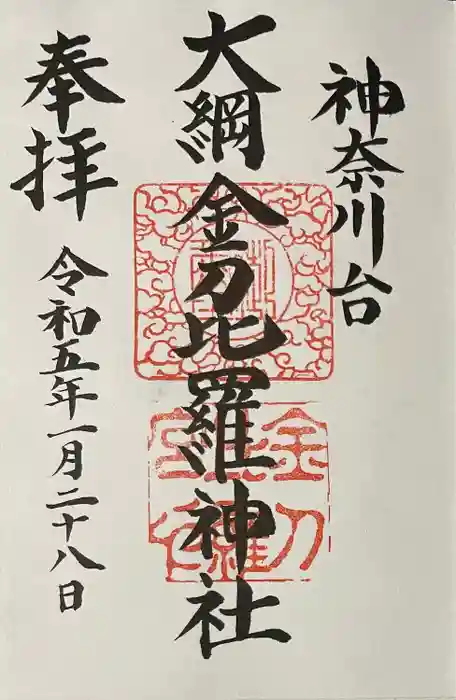 神奈川台
大綱金刀比羅神社
奉拝
令和五年一月二十八日